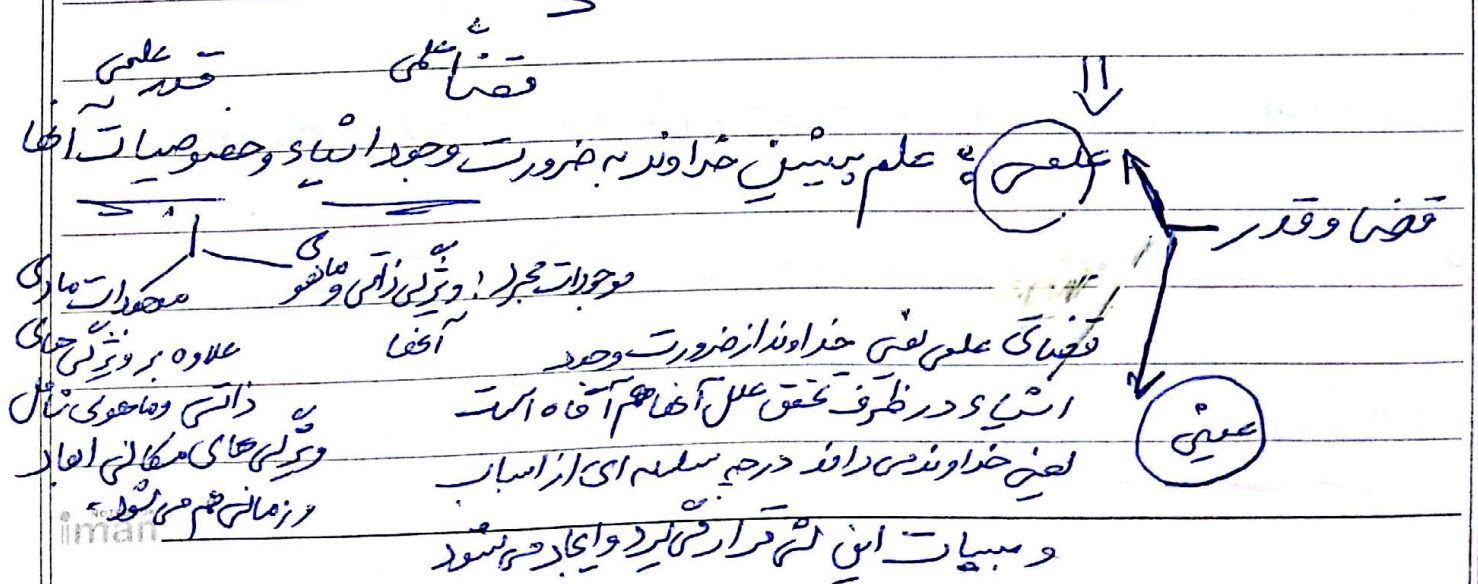 قضا علمی
قدر علمی
قضا و قدر
علمی: علم پیشین خداوند به ضرورت وجود اشیاء و خصوصیات آنها
موجودات مجرد: ویژگی ذاتی و ماهوی
آنها
موجودات مادی
علاوه بر ویژگی های
ذاتی و ماهوی شامل
ویژگی های مکانی ابعاد
و زمانی هم می شود.
قضای علمی یعنی خداوند از ضرورت وجود
اشیاء در ظرف تحقق علل آنها هم آگاه است
یعنی خداوند می داند در چه سلسله ای از اسباب
و مسببات این شی قرار می گیرد و ایجاد می شود
عینی
NOTEBOOK
iman